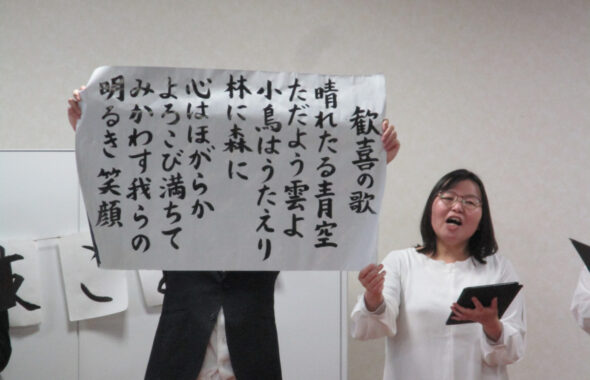 歓喜の歌
晴れたる青空
ただよう雲よ
小鳥はうたえり
林に森に
心はほがらか
よろこび満ちて
みかわす我らの
明るき笑顔